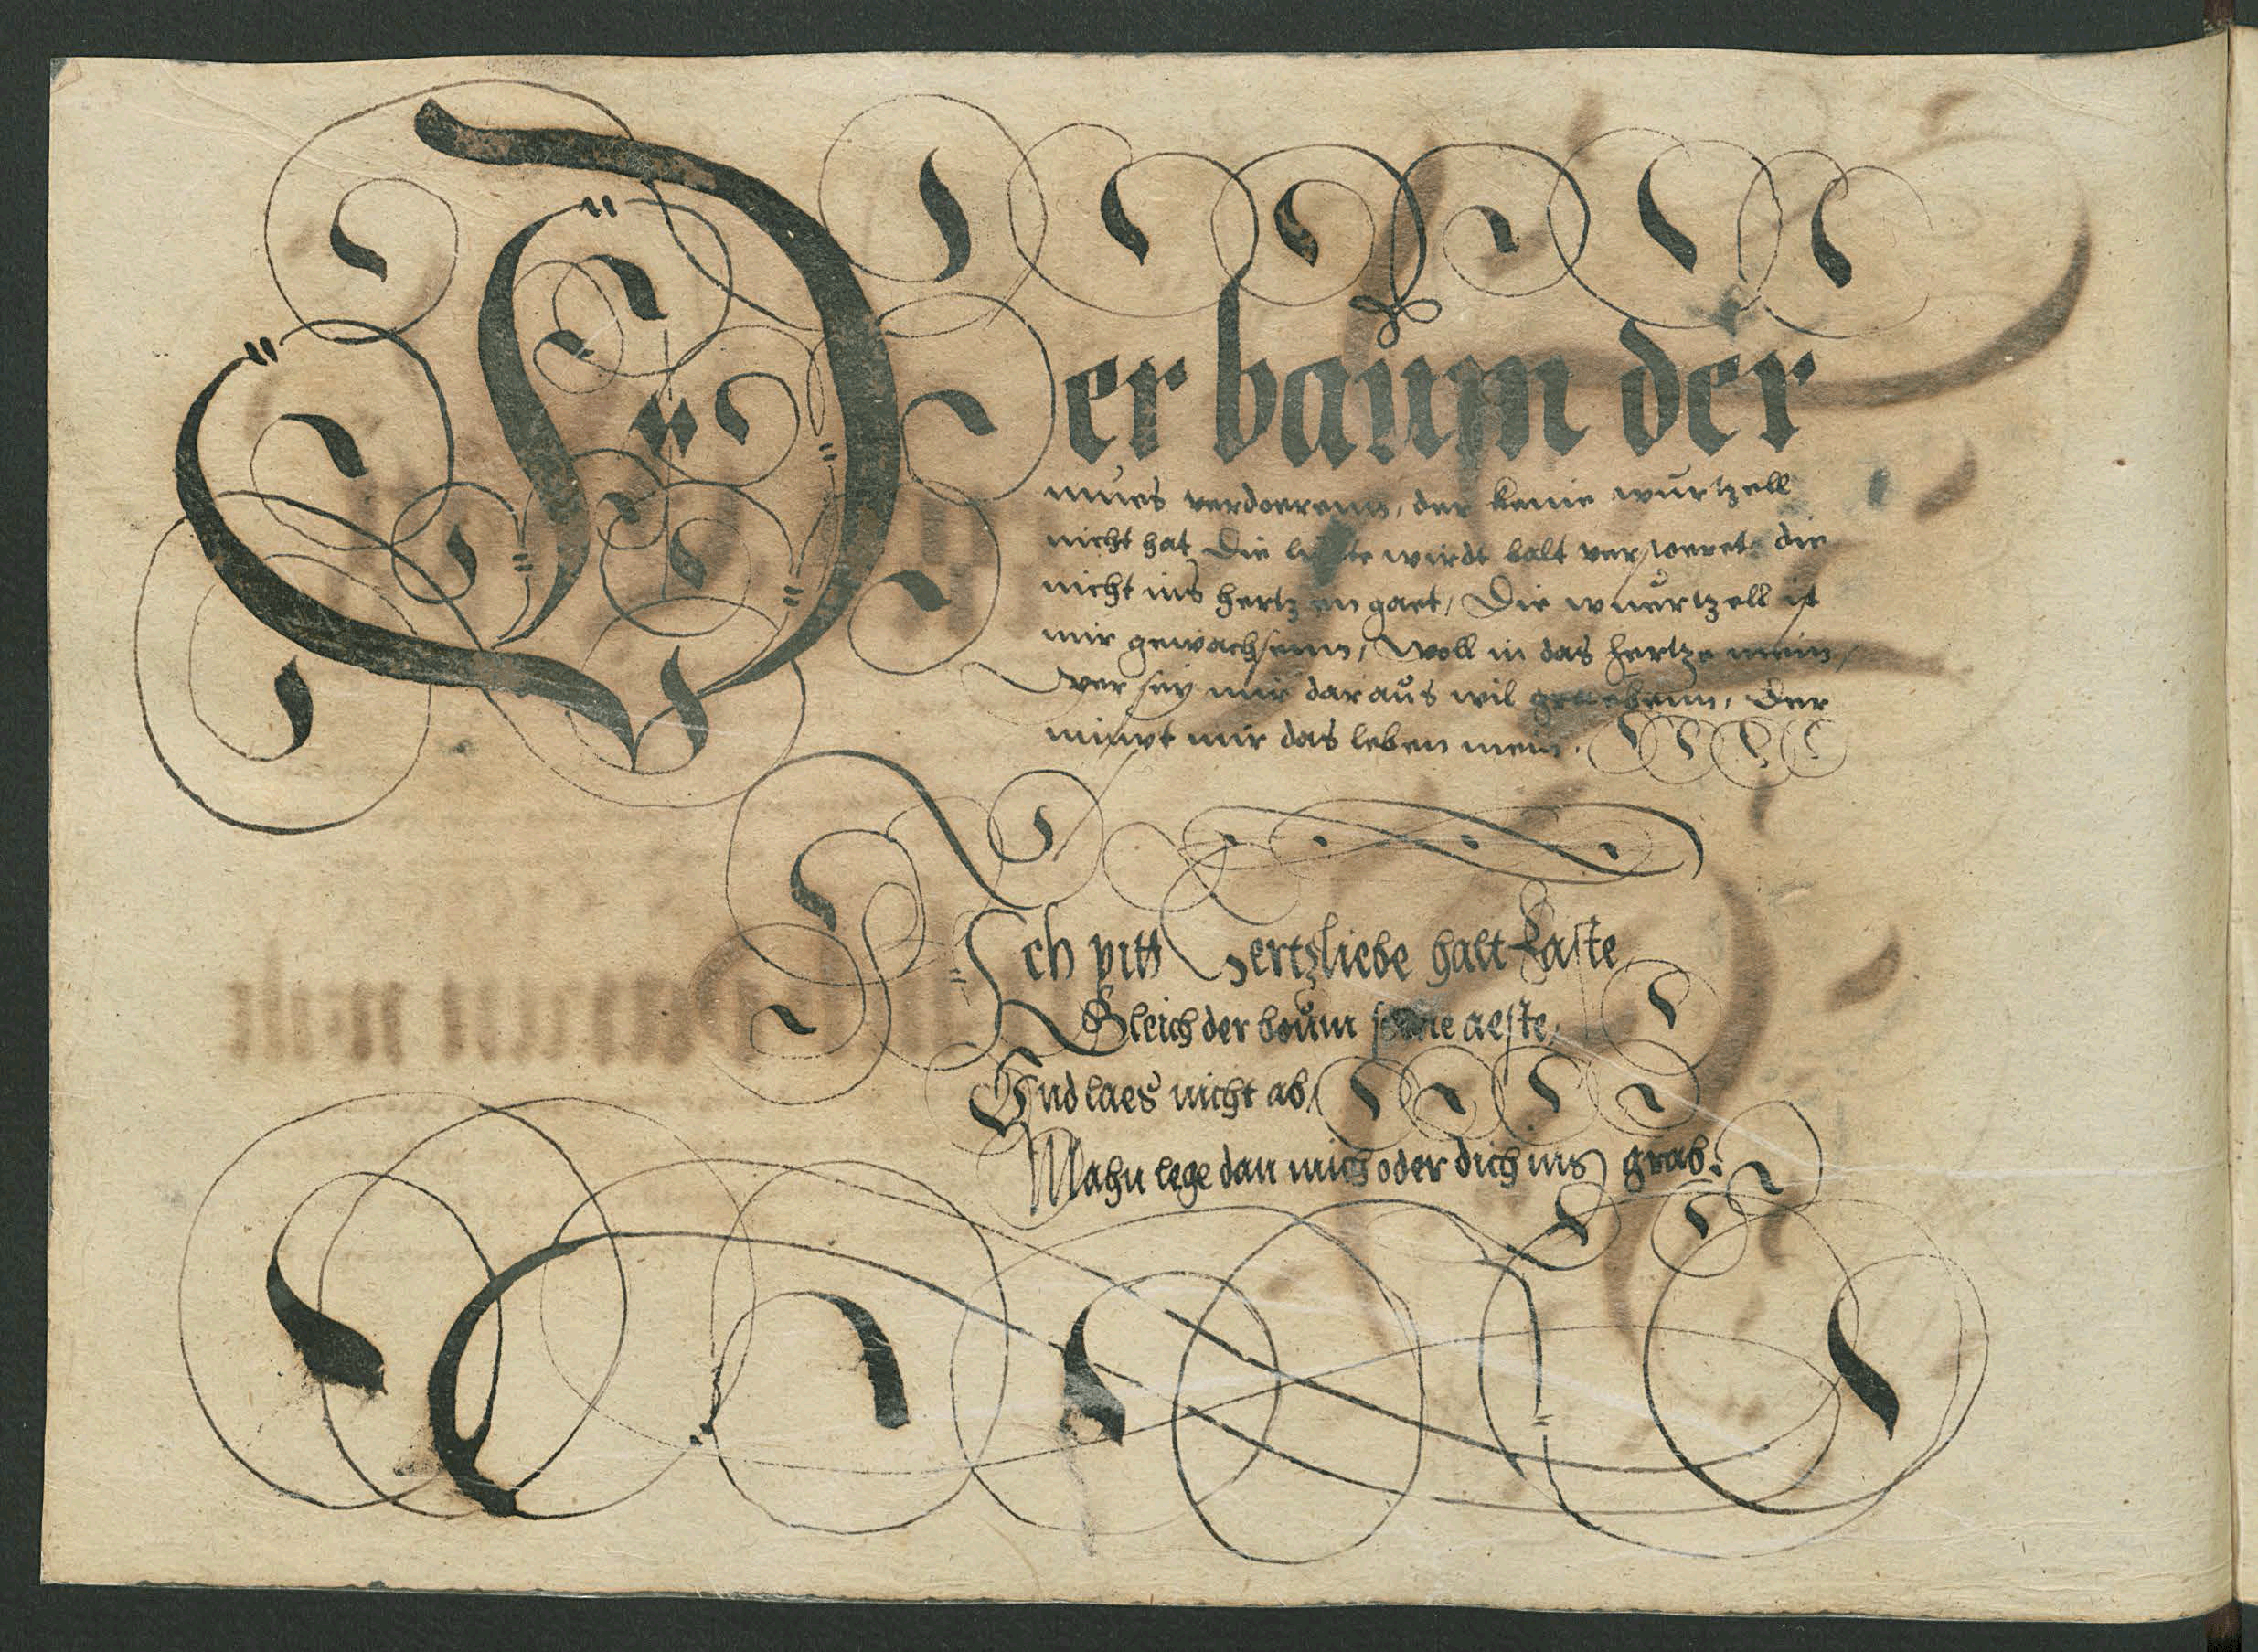 Der baum der
mues verdoerenn, der keine wurtzell
nicht hat Die liebte wirdt balt verstoeret die
nicht ins hertz en gaet, Die wuertzell ist
mir gewachsenn, Woll in das hertze mein,
Wer sey mir daraus wil graebenn, Der
nimpt mir das leben mein.
Ich pitt Hertzliebe halt kaste
Gleich der boum seine aeste,
Und laes nicht ab,
Mahn lege dan mich oder dich ins grab.